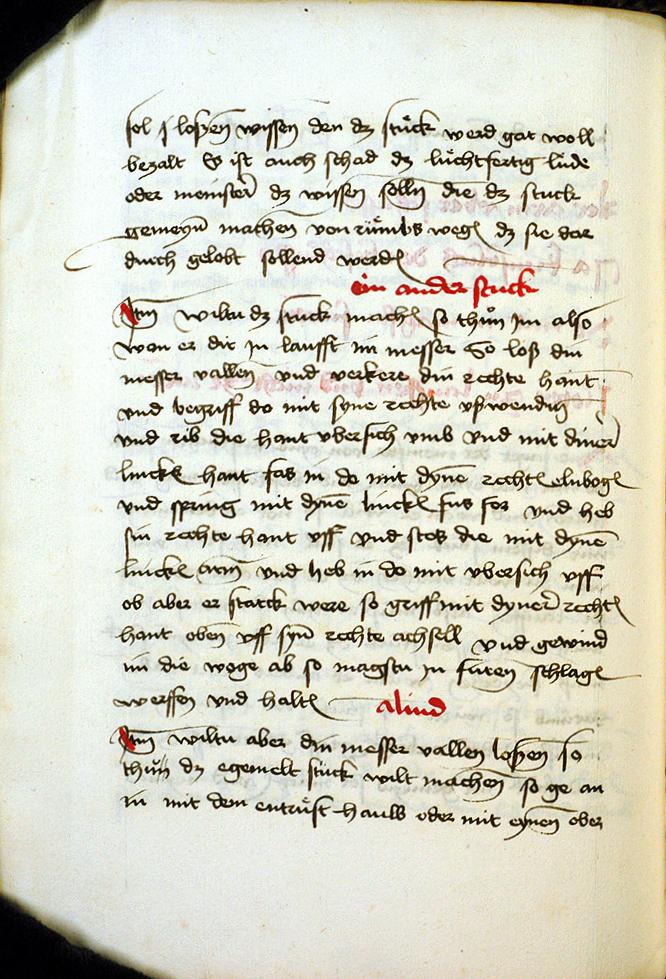 sol ſ loßen wissen den dz stuͤck werd gar woll
bezalt Es ist auch schad dz lüchtfertig lude
oder meinster dz wissen sölln die dz stuck
gemeyn machen von ruͤmbs wegen dz sie dar
durch gelobt sollend werden
ein ander stuck
Item wiltu dz stuck machen so thuͦn im also
wen er dir in laufft im messer So loß din
messer vallen vnd verkere din rechte hant
vnd begriff do mit syne rechte vßwendig
vnd rib die hant vbersich vmb vnd mit diner
lincken hant fas in do mit dyne rechten elnbogen
vnd spring mit dyne lincken fus for vnd heb
sin rechte hant vff vnd stos die mit dyne
lincken arm vnd heb in do mit vbersich vff
ob aber er starck were so griff mit dyner rechten
hant oben vff syn rechte achsell vnd gewind
im die woge ab so magstu in füren schlagen
werffen vnd halten
aliud
Item wiltu aber din messer vallen loßen so
thuͦn dz egemelt stuͤck wilt machen so ge an
in mit dem entruͤst hauw oder mit eynem ober